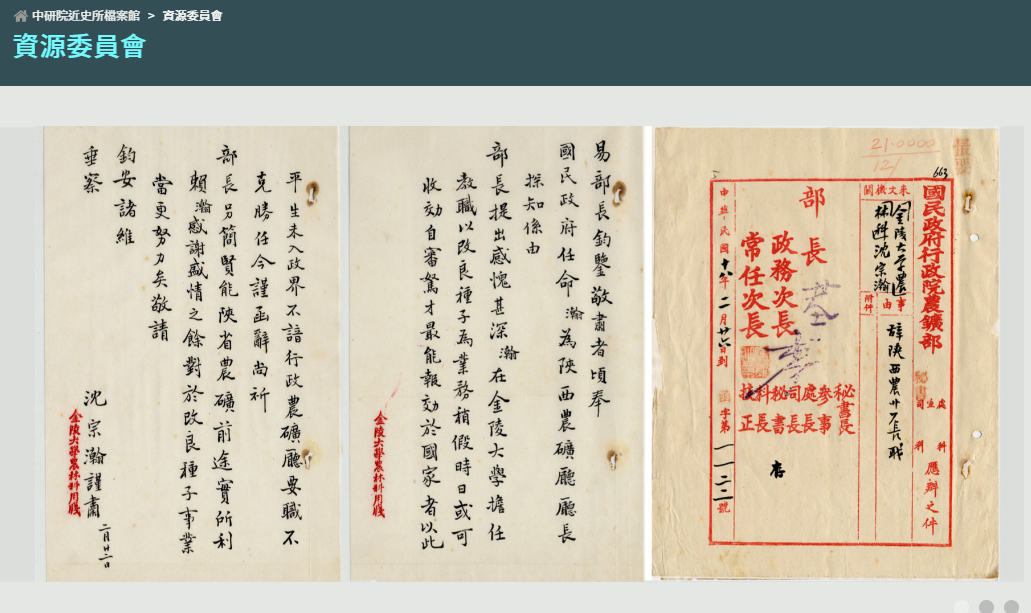 中研院近史所檔案館 > 資源委員會
資源委員會
21.0000
121
663
國民政府行政院農鑛部
處
生
司
科
應辦之件
來文機關
金陵大學農
林科沈宗瀚
事由
附件
辭陝西農廳長職
部長
政務次長
常任次長
秘書長
參事
處長
司長
秘書
科長
存
中華民國十八年二月廿六日到
字第一一三二號
易部長鈞鑒敬肅者頃奉
國民政府任命瀚為陝西農礦廳廳長
探知係由
部長提出感愧甚深瀚在金陵大學擔任
教職以改良種子為業務稍假時日或可
收効自審駑才最能報効於國家者以此
金陵大學農林科用牋
平生未入政界不諳行政農礦廳要職不
克勝任今謹函辭尚祈
部長另簡賢能陝省農礦前途實所利
賴瀚感謝盛情之餘對於改良種子事業
當更努力矣敬請
鈞安諸維
垂察
沈宗瀚謹肅
二月廿二日
金陵大學農林科用牋